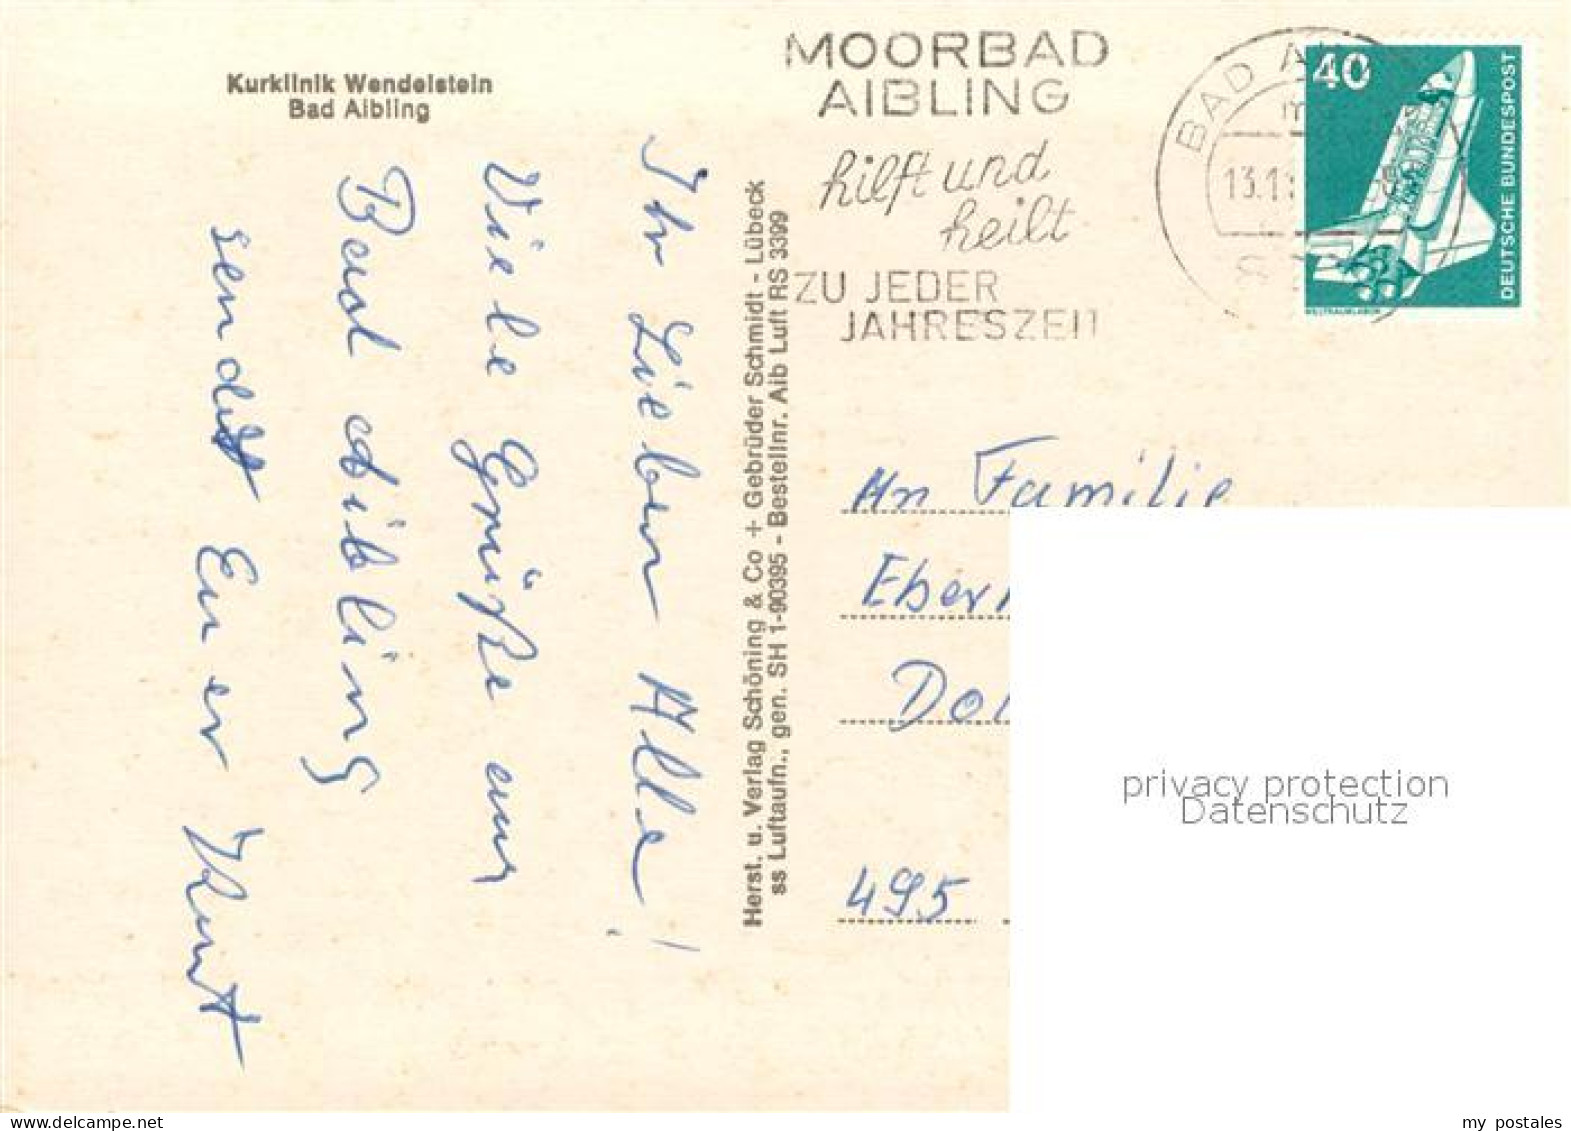 Kurklinik Wendelstein
Bad Aibling
MOORBAD
AIBLING
hilft und
heilt
ZU JEDER
JAHRESZEIT
BAD
13.11
40
DEUTSCHE BUNDESPOST
WELTRAUMLABOR
Ihr Lieben Alle!
Viele Grüße aus
Bad Aibling
sendet Euer Kurt
Herst. u. Verlag Schöning & Co + Gebrüder Schmidt - Lübeck
ss Luftaufn., gen. SH 1-90395 - Bestellnr. Aib Luft RS 3399
An Familie
Eber
Do
495
privacy protection
Datenschutz
my postales